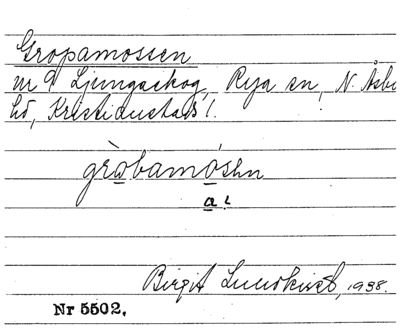 Gropamossen
nr 9 Ljungaskog, Rya sn, N. Åsbo
hd, Kristianstads l.
grȯbamosən
a!
Birgit Lundkvist, 1938.
Nr 5502.